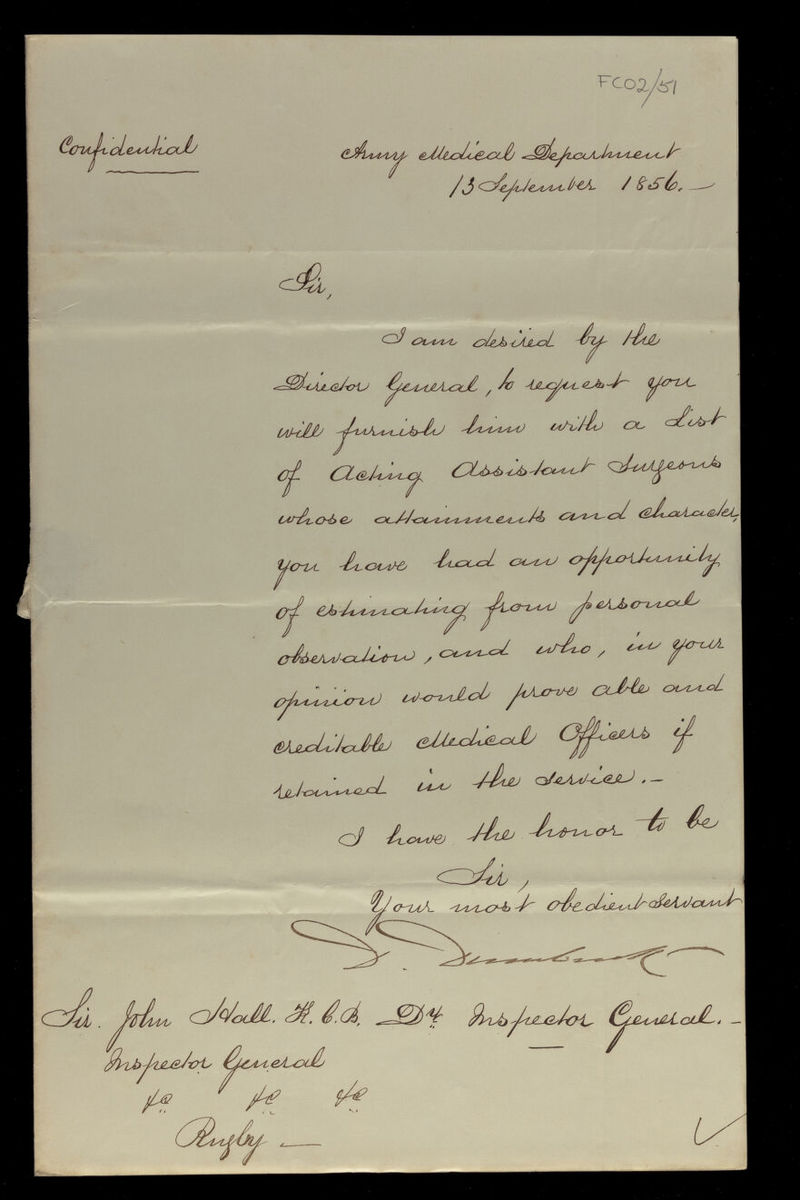 FCO2/51
Confidential
Army Medical Department
13 September 1856.—
Sir,
I am desired by the
Director General, to request you
will furnish him with a List
of Acting Assistant Surgeons
whose attainments and character,
you have had an opportunity
of estimating from personal
observation, and who, in your
opinion would prove able and
creditable Medical Officers if
retained in the service.—
I have the honor to be
Sir,
Your most obedient servant
D. Dumbreck
Sir. John Hall. K.C.B. Dy. Inspector General.—
Inspector General
&c &c &c
Rugby—